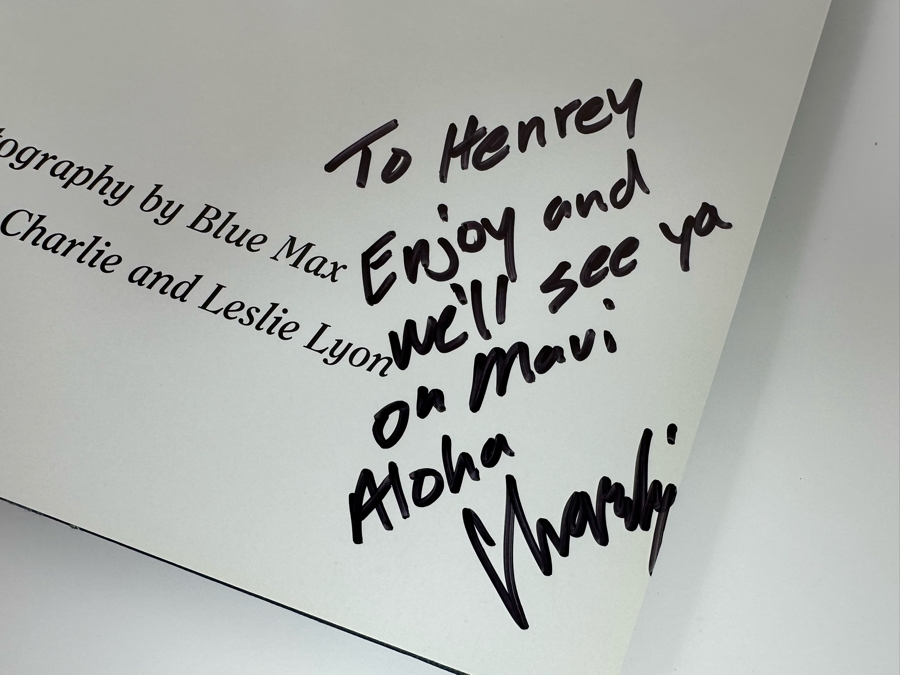 tography by Blue Max
Charlie and Leslie Lyon
To Henrey
Enjoy and
we'll see ya
on Maui
Aloha